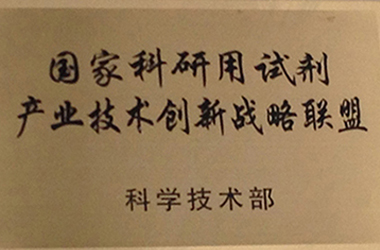 国家科研用试剂
产业技术创新战略联盟
科学技术部